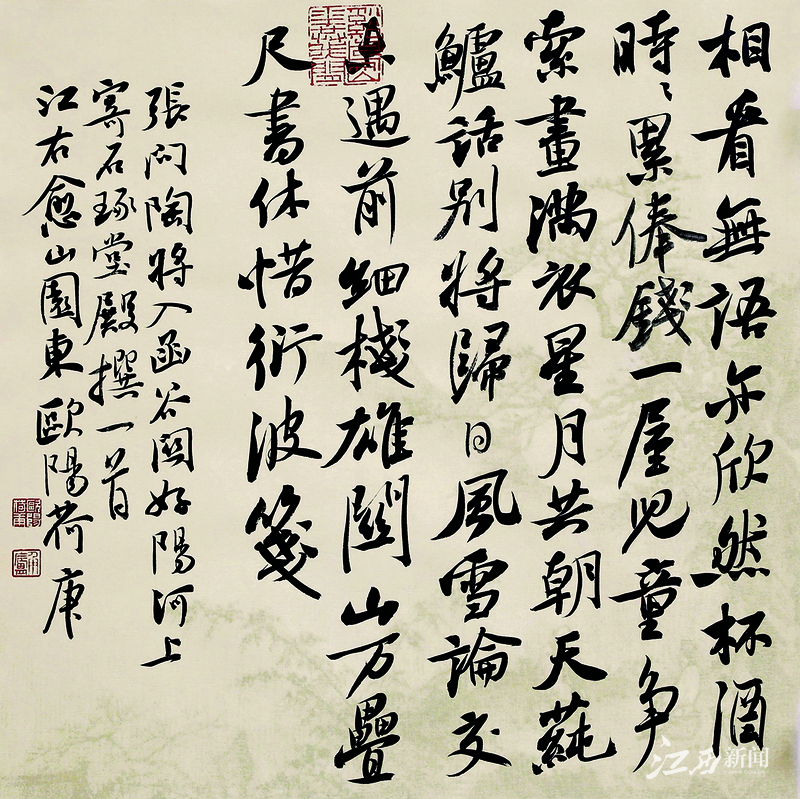 相看無語亦欣然杯酒
時〻累俸錢一屋児童争
索畫滿衣星月共朝天蒓
鱸話別將歸日風雪論交
遇前細棧雄關山万疊
尺書休惜衍波箋
張問陶將入函谷關好陽河上
寄石琢堂殿撰一首
江右愈山園東歐陽荷庚
江西新闻